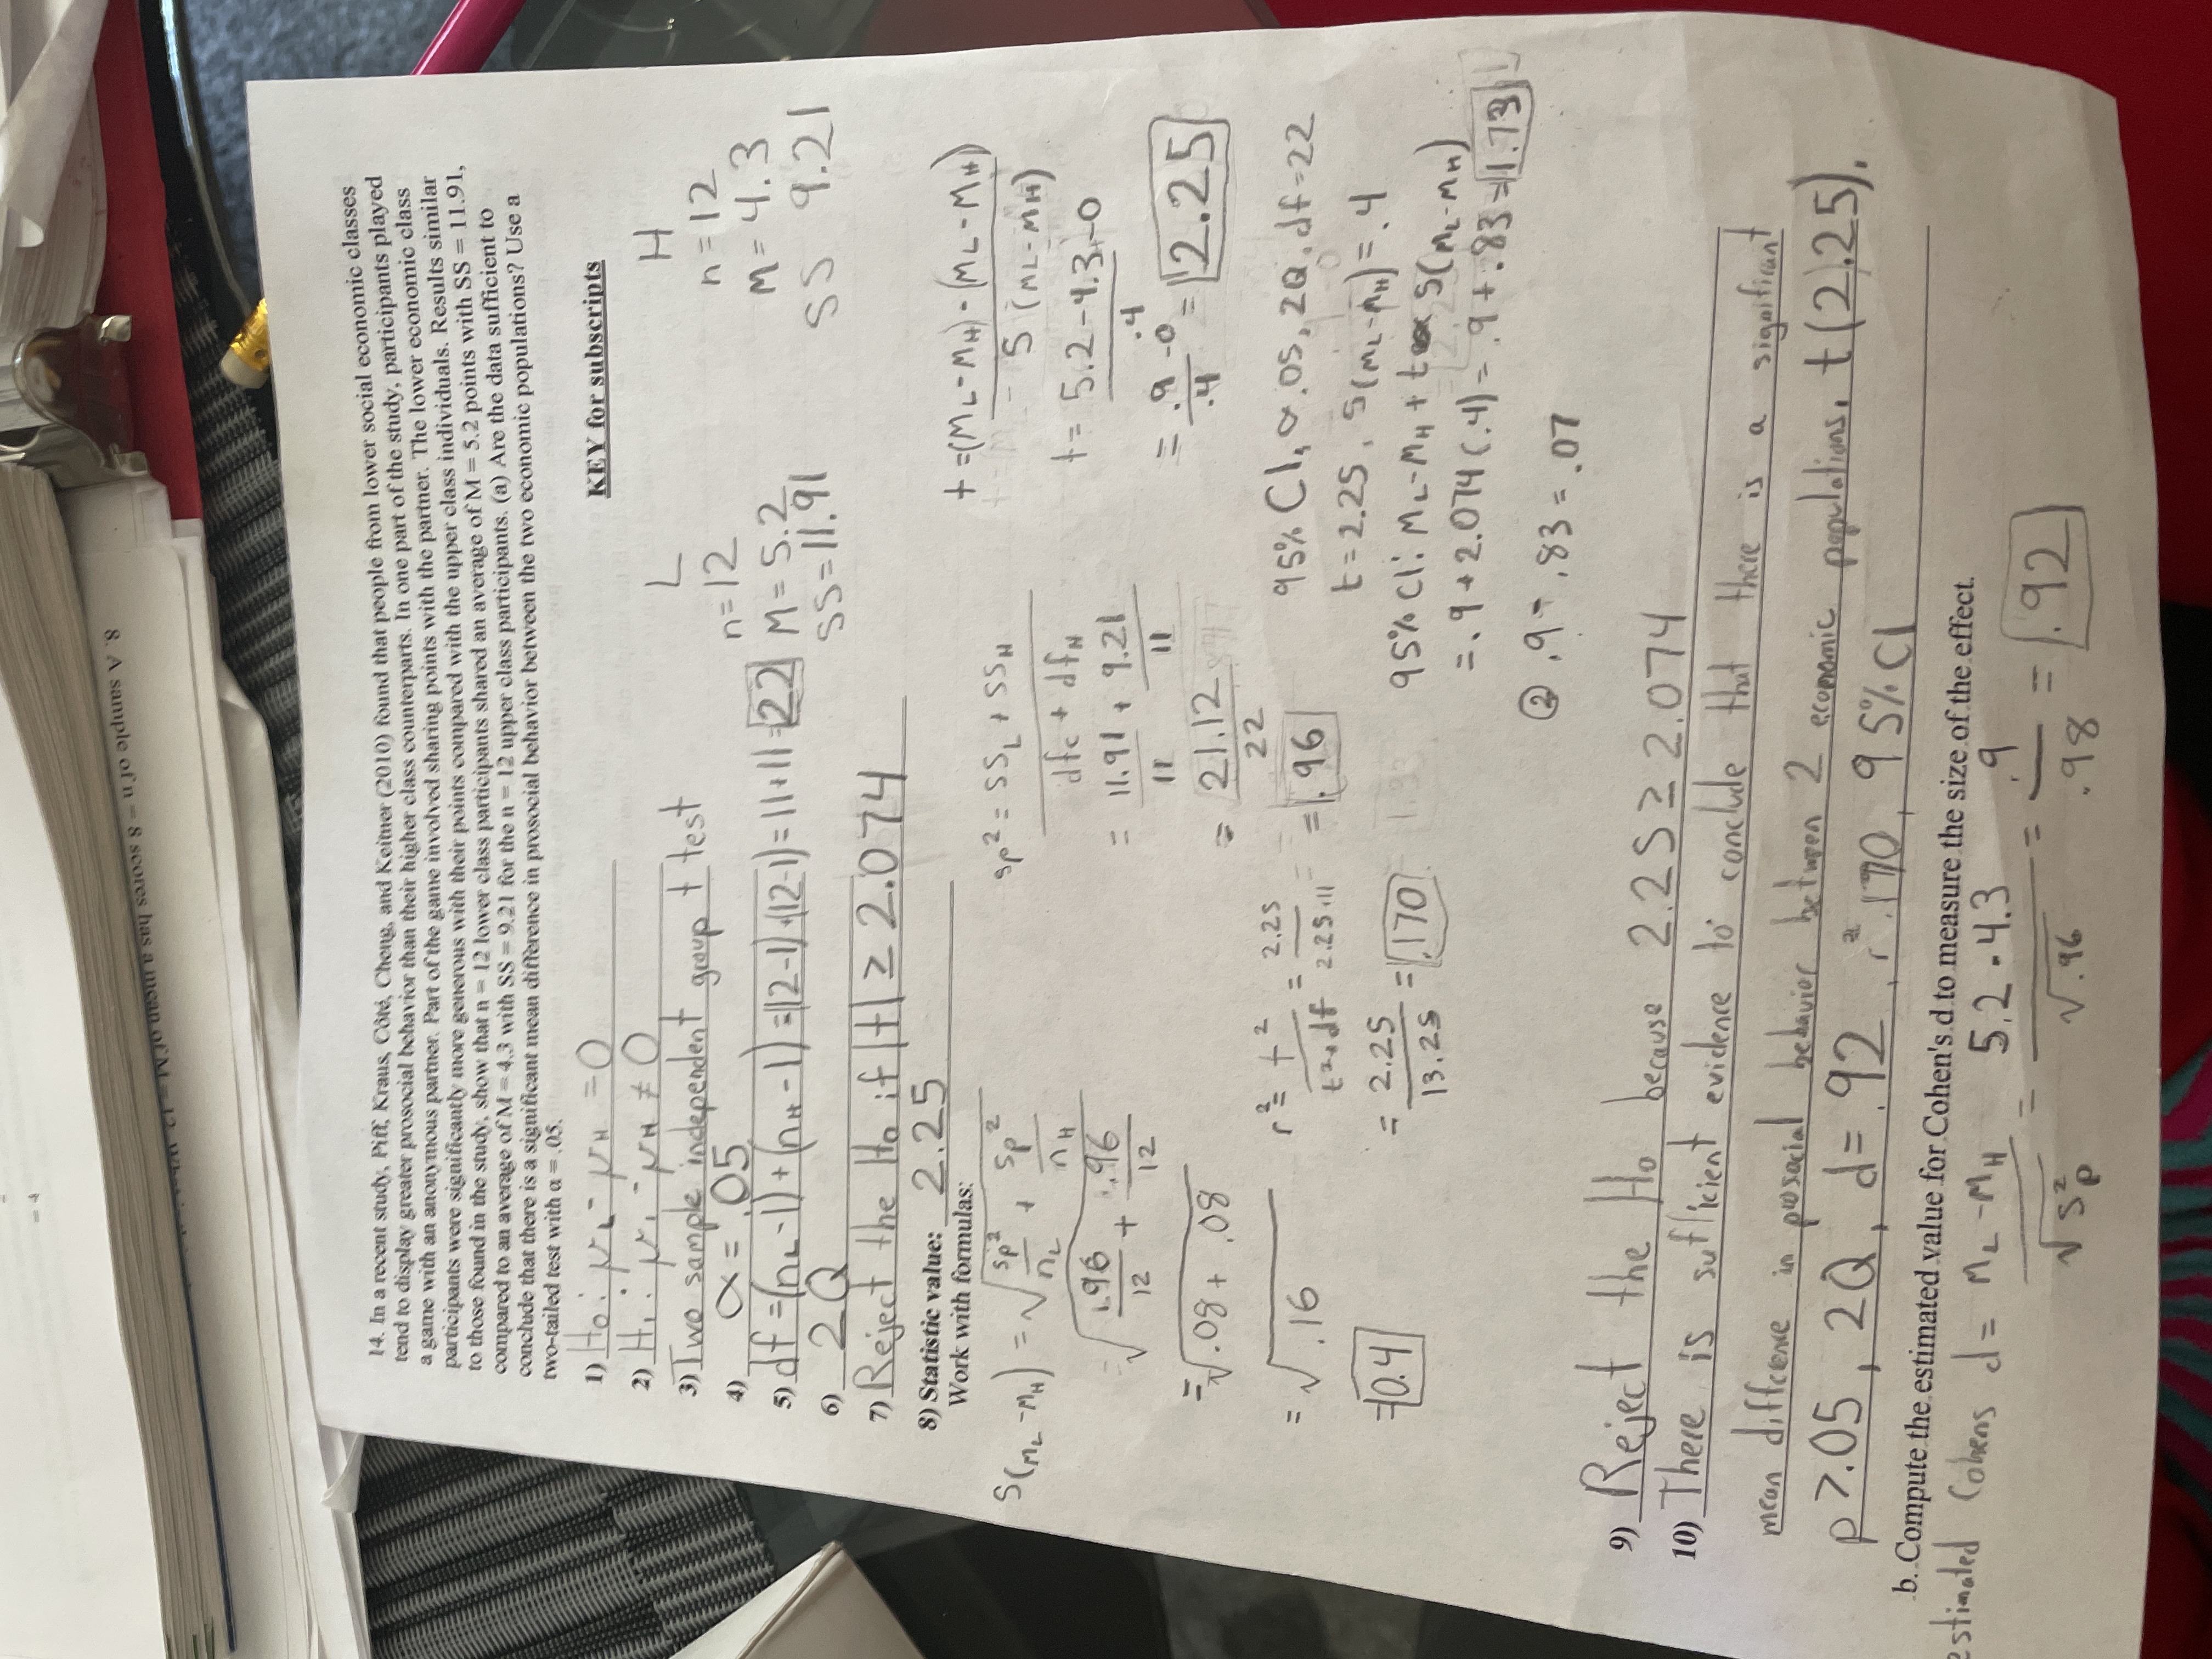 8. A sample of n = 8 scores has a mean of M = 12. What
= 4
14. In a recent study, Piff, Kraus, Côté, Cheng, and Keitner (2010) found that people from lower social economic classes
tend to display greater prosocial behavior than their higher class counterparts. In one part of the study, participants played
a game with an anonymous partner. Part of the game involved sharing points with the partner. The lower economic class
participants were significantly more generous with their points compared with the upper class individuals. Results similar
to those found in the study, show that n = 12 lower class participants shared an average of M = 5.2 points with SS = 11.91,
compared to an average of M = 4.3 with SS = 9.21 for the n = 12 upper class participants. (a) Are the data sufficient to
conclude that there is a significant mean difference in prosocial behavior between the two economic populations? Use a
two-tailed test with α = .05.
KEY for subscripts
1) H₀: μL - μH = 0
2) H₁: μL - μH ≠ 0
L H
3) Two sample independent group t test
n=12 n=12
4) α = .05
M = 5.2 M = 4.3
5) df = (nL - 1) + (nH - 1) = (12-1)+(12-1) = 11+11 = 22
SS = 11.91 SS 9.21
6) 2Q
7) Reject the H₀ if |t| ≥ 2.074
8) Statistic value: 2.25
Work with formulas:
S(ML - MH) = √ sp²/nL + sp²/nH
= √ .96/12 + .96/12
= √.08 + .08
= √.16
= 0.4
sp² = SSL + SSH / dfc + dfH
= 11.91/11 + 9.21/11
= 21.12/22
= .96
r² = t²/t²+df = 2.25/2.25+11 =
= 2.25/13.25 = .170
t = (ML - MH) - (ML - MH) / S(ML - MH)
t = 5.2 - 4.3 - 0 / .4
= .9 - 0/.4 = 2.25
95% CI, α .05, 2Q, df = 22
t = 2.25, S(ML - MH) = .4
95% CI: ML - MH + t S(ML - MH)
= .9 + 2.074(.4) = .9 + .83 = 1.73
② .9 - .83 = .07
9) Reject the H₀ because 2.25 ≥ 2.074
10) There is sufficient evidence to conclude that there is a significant
mean difference in posocial behavior between 2 economic populations, t (2.25),
p > .05, 2Q, d = .92, r² .170, 95% CI
b. Compute the estimated value for Cohen's d to measure the size of the effect.
estimated Cohens d = ML - MH / √S²p = 5.2 - 4.3 / √.96 = .9/.98 = .92